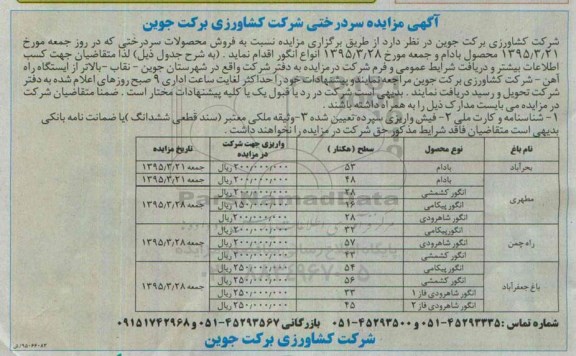 آگهی مزایده سردرختی شرکت کشاورزی برکت جوین
شرکت کشاورزی برکت جوین در نظر دارد از طریق برگزاری مزایده نسبت به فروش محصولات سردرختی که در روز جمعه مورخ
۱۳۹۵/۳/۲۱ محصول بادام و جمعه مورخ ۱۳۹۵/۳/۲۸ انواع انگور اقدام نماید . (به شرح جدول ذیل) لذا متقاضیان جهت کسب
اطلاعات بیشتر و دریافت شرایط عمومی و فرم شرکت در مزایده به دفتر شرکت واقع در شهرستان جوین - نقاب - بالاتر از ایستگاه راه
آهن - شرکت کشاورزی برکت جوین مراجعه نمایند و پیشنهادات خود را حداکثر لغایت ساعت اداری ۹ صبح روزهای اعلام شده به دفتر
شرکت تحویل و رسید دریافت نمایند . بدیهی است شرکت در رد یا قبول یک یا کلیه پیشنهادات مختار است . ضمنا متقاضیان شرکت
در مزایده می بایست مدارک ذیل را به همراه داشته باشند .
۱ - شناسنامه و کارت ملی ۲- فیش واریزی سپرده تعیین شده ۳- وثیقه ملکی معتبر (سند قطعی ششدانگ) یا ضمانت نامه بانکی
بدیهی است متقاضیان فاقد شرایط مذکور حق شرکت در مزایده را نخواهند داشت .
نام باغ نوع محصول سطح (هکتار) واریزی جهت شرکت در مزایده تاریخ مزایده
بحرآباد بادام ۵۳ ۲۰۰/۰۰۰/۰۰۰ ریال جمعه ۱۳۹۵/۳/۲۱
مطهری بادام ۴۸ ۲۰۰/۰۰۰/۰۰۰ ریال جمعه ۱۳۹۵/۳/۲۱
انگور کشمشی ۳۸ ۲۰۰/۰۰۰/۰۰۰ ریال جمعه ۱۳۹۵/۳/۲۸
انگور پیکامی ۱۶ ۱۵۰/۰۰۰/۰۰۰ ریال
انگور شاهرودی ۲۸ ۲۰۰/۰۰۰/۰۰۰ ریال
راه چمن انگور پیکامی ۳۲ ۲۰۰/۰۰۰/۰۰۰ ریال جمعه ۱۳۹۵/۳/۲۸
انگور شاهرودی ۵۷ ۲۰۰/۰۰۰/۰۰۰ ریال
انگور کشمشی ۴۳ ۲۰۰/۰۰۰/۰۰۰ ریال
باغ جعفرآباد انگور پیکامی ۵۴ ۲۵۰/۰۰۰/۰۰۰ ریال جمعه ۱۳۹۵/۳/۲۸
انگور کشمشی ۵۶ ۲۵۰/۰۰۰/۰۰۰ ریال
انگور شاهرودی فاز ۱ ۳۳ ۲۵۰/۰۰۰/۰۰۰ ریال
انگور شاهرودی فاز ۲ ۴۵ ۲۵۰/۰۰۰/۰۰۰ ریال
شماره تماس : ۴۵۲۹۳۳۳۵-۰۵۱ و ۴۵۲۹۳۵۰۰-۰۵۱ بازرگانی ۴۵۲۹۳۵۶۷-۰۵۱ و ۰۹۱۵۱۷۴۲۹۶۸
شرکت کشاورزی برکت جوین